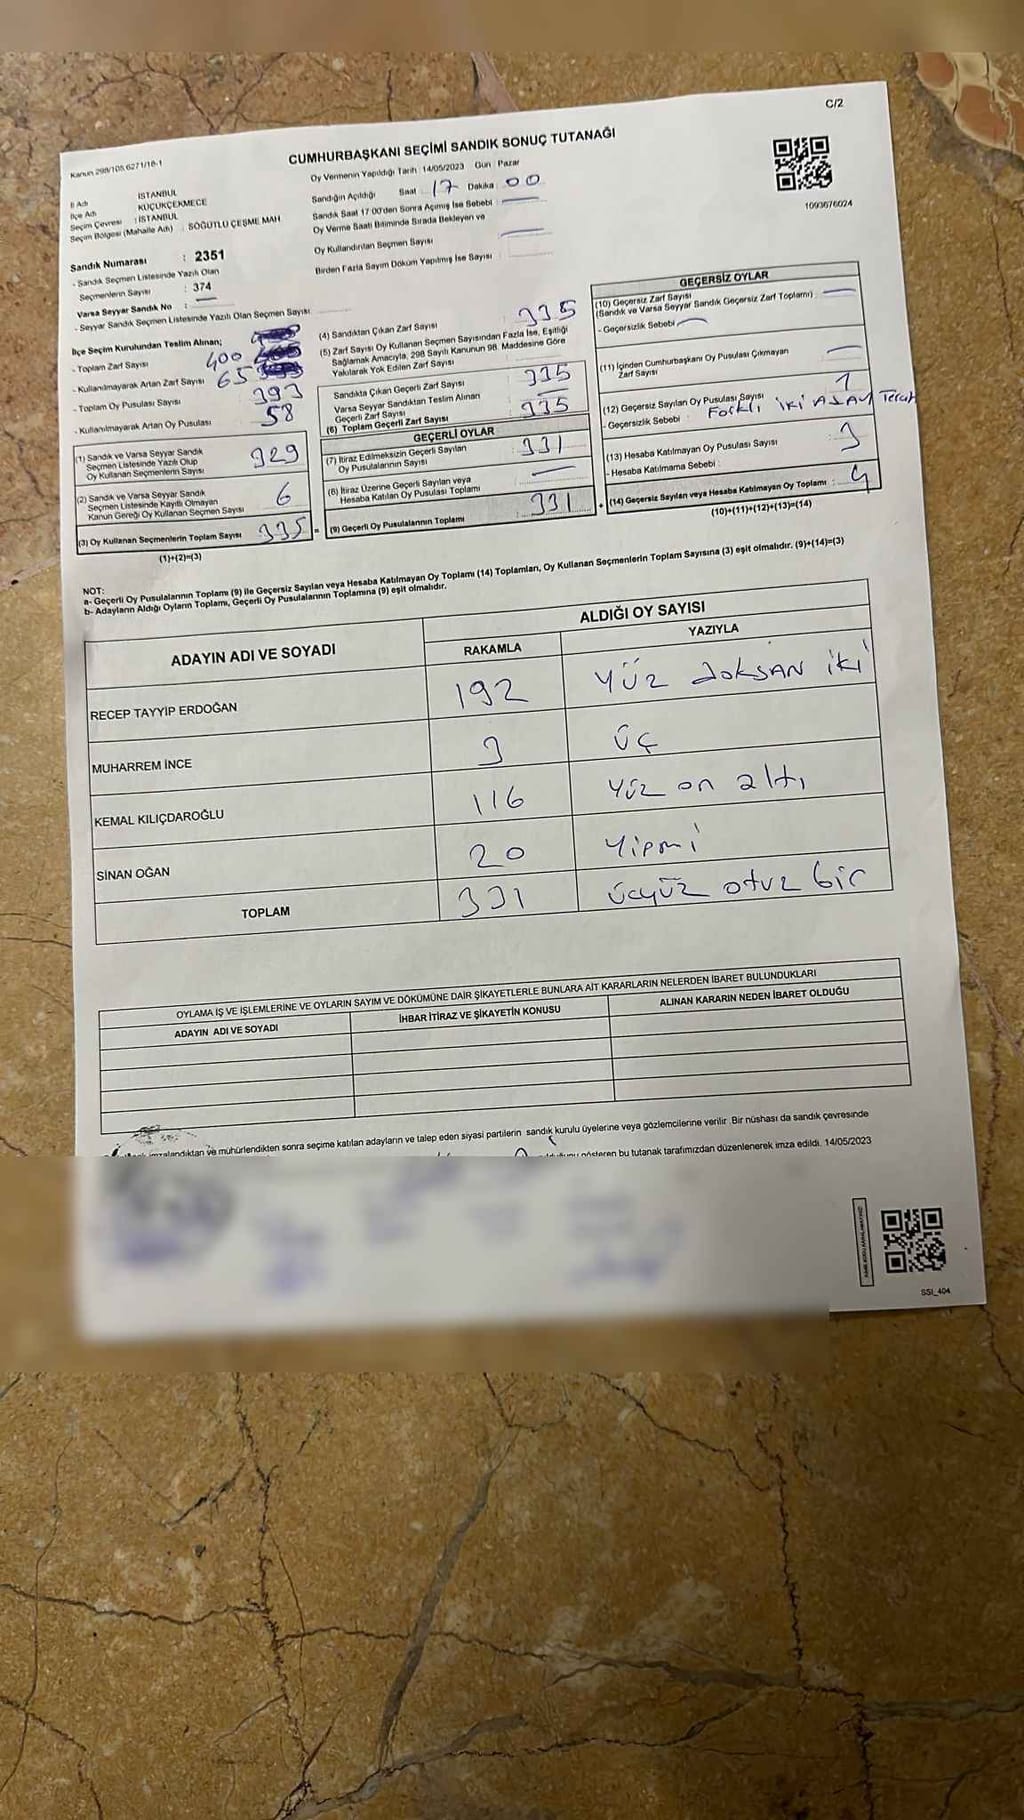 C/2
Kanun 298/105,6271/18-1
CUMHURBAŞKANI SEÇİMİ SANDIK SONUÇ TUTANAĞI
İl Adı : İSTANBUL
İlçe Adı KÜÇÜKÇEKMECE
Seçim Çevresi : İSTANBUL
Seçim Bölgesi (Mahalle Adı) : SÖĞÜTLÜ ÇEŞME MAH
Sandık Numarası : 2351
- Sandık Seçmen Listesinde Yazılı Olan
Seçmenlerin Sayısı : 374
Varsa Seyyar Sandık No :
- Seyyar Sandık Seçmen Listesinde Yazılı Olan Seçmen Sayısı
Oy Vermenin Yapıldığı Tarih : 14/05/2023 Gün Pazar
Sandığın Açıldığı Saat 17 Dakika 00
Sandık Saat 17:00'den Sonra Açılmış İse Sebebi
Oy Verme Saati Bitiminde Sırada Bekleyen ve
Oy Kullandırılan Seçmen Sayısı
Birden Fazla Sayım Döküm Yapılmış İse Sayısı
1093676024
İlçe Seçim Kurulundan Teslim Alınan;
- Toplam Zarf Sayısı 400
- Kullanılmayarak Artan Zarf Sayısı 65
- Toplam Oy Pusulası Sayısı 393
- Kullanılmayarak Artan Oy Pusulası 58
(1) Sandık ve Varsa Seyyar Sandık
Seçmen Listesinde Yazılı Olup
Oy Kullanan Seçmenlerin Sayısı 329
(2) Sandık ve Varsa Seyyar Sandık
Seçmen Listesinde Kayıtlı Olmayan
Kanun Gereği Oy Kullanan Seçmen Sayısı 6
(3) Oy Kullanan Seçmenlerin Toplam Sayısı 335
(1)+(2)=(3)
(4) Sandıktan Çıkan Zarf Sayısı 335
(5) Zarf Sayısı Oy Kullanan Seçmen Sayısından Fazla İse, Eşitliği
Sağlamak Amacıyla, 298 Sayılı Kanunun 98. Maddesine Göre
Yakılarak Yok Edilen Zarf Sayısı
Sandıkta Çıkan Geçerli Zarf Sayısı 335
Varsa Seyyar Sandıktan Teslim Alınan
Geçerli Zarf Sayısı
(6) Toplam Geçerli Zarf Sayısı 335
GEÇERLİ OYLAR
(7) İtiraz Edilmeksizin Geçerli Sayılan
Oy Pusulalarının Sayısı : 331
(8) İtiraz Üzerine Geçerli Sayılan veya
Hesaba Katılan Oy Pusulası Toplamı :
(9) Geçerli Oy Pusulalarının Toplamı : 331
GEÇERSİZ OYLAR
(10) Geçersiz Zarf Sayısı
(Sandık ve Varsa Seyyar Sandık Geçersiz Zarf Toplamı)
- Geçersizlik Sebebi
(11) İçinden Cumhurbaşkanı Oy Pusulası Çıkmayan
Zarf Sayısı
(12) Geçersiz Sayılan Oy Pusulası Sayısı 1
- Geçersizlik Sebebi : Farklı iki ADAY Tercih
(13) Hesaba Katılmayan Oy Pusulası Sayısı 3
- Hesaba Katılmama Sebebi :
(14) Geçersiz Sayılan veya Hesaba Katılmayan Oy Toplamı : 4
(10)+(11)+(12)+(13)=(14)
NOT:
a- Geçerli Oy Pusulalarının Toplamı (9) ile Geçersiz Sayılan veya Hesaba Katılmayan Oy Toplamı (14) Toplamları, Oy Kullanan Seçmenlerin Toplam Sayısına (3) eşit olmalıdır. (9)+(14)=(3)
b- Adayların Aldığı Oyların Toplamı, Geçerli Oy Pusulalarının Toplamına (9) eşit olmalıdır.
ADAYIN ADI VE SOYADI ALDIĞI OY SAYISI
RAKAMLA YAZIYLA
RECEP TAYYİP ERDOĞAN 192 yüz doksan iki
MUHARREM İNCE 3 üç
KEMAL KILIÇDAROĞLU 116 yüz on altı
SİNAN OĞAN 20 yirmi
TOPLAM 331 üçyüz otuz bir
OYLAMA İŞ VE İŞLEMLERİNE VE OYLARIN SAYIM VE DÖKÜMÜNE DAİR ŞİKAYETLERLE BUNLARA AİT KARARLARIN NELERDEN İBARET BULUNDUKLARI
ADAYIN ADI VE SOYADI İHBAR İTİRAZ VE ŞİKAYETİN KONUSU ALINAN KARARIN NEDEN İBARET OLDUĞU
ve mühürlendikten sonra seçime katılan adayların ve talep eden siyasi partilerin sandık kurulu üyelerine veya gözlemcilerine verilir. Bir nüshası da sandık çevresinde
gösteren bu tutanak tarafımızdan düzenlenerek imza edildi. 14/05/2023
SSI_404